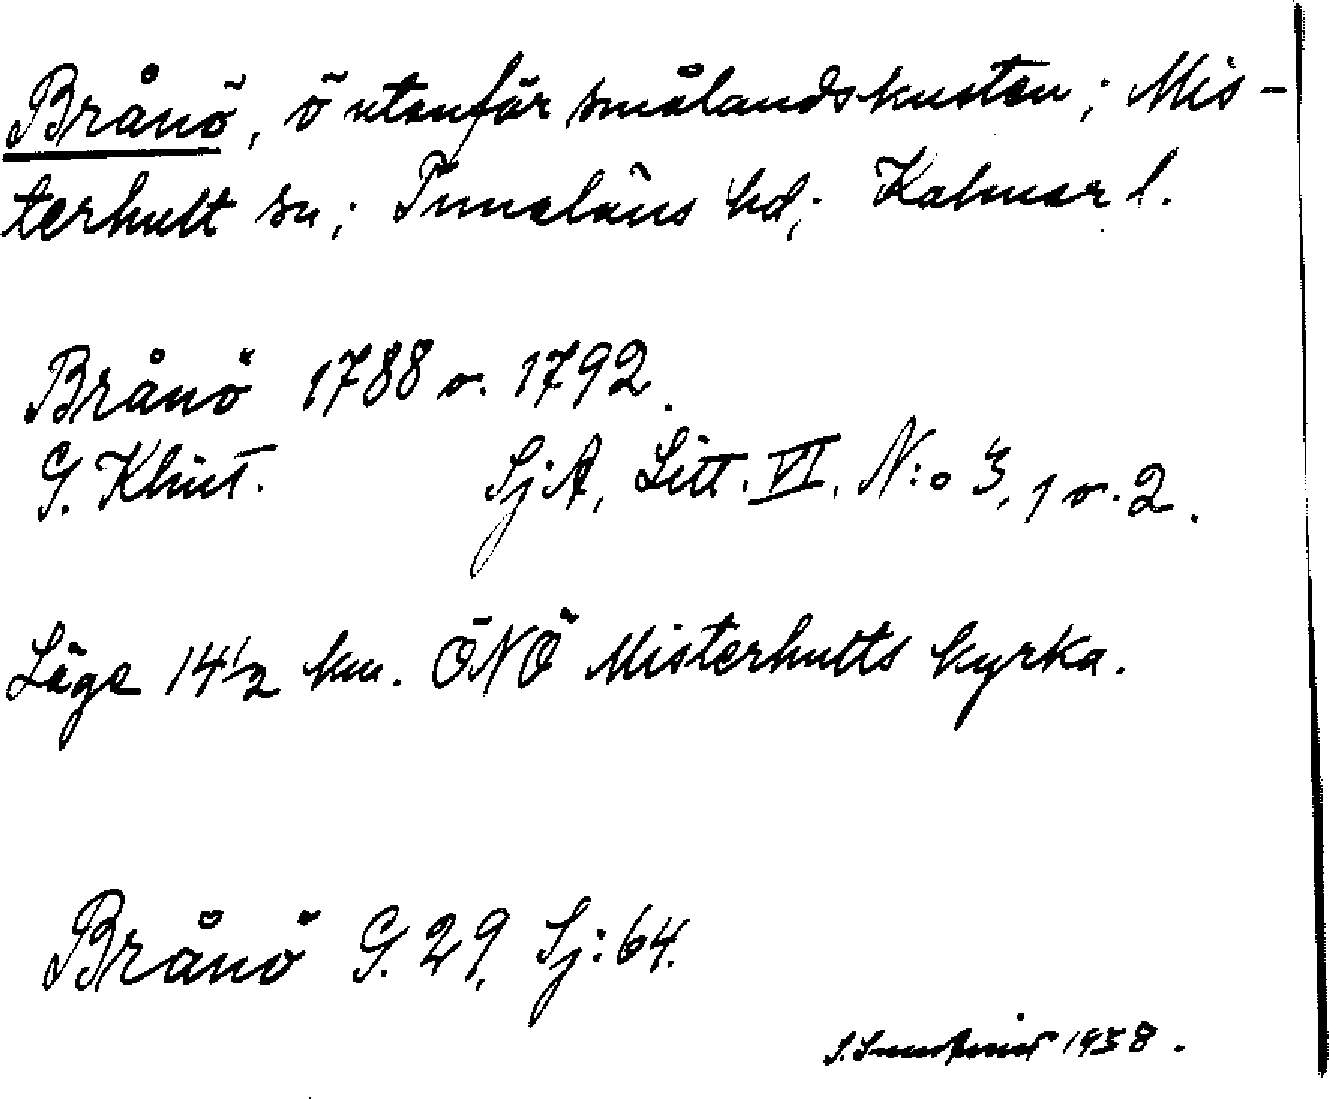 Brånö, ö utanför smålandskusten; Mis-
terhult sn; Tunaläns hd; Kalmar l.
Brånö 1788 o. 1792.
G. Klint. SjA, Litt. VI. N:o 3, 1 o. 2.
Läge 14 1/2 km. ÖNÖ Misterhults kyrka.
Brånö G. 29, Sj: 64.
1938.